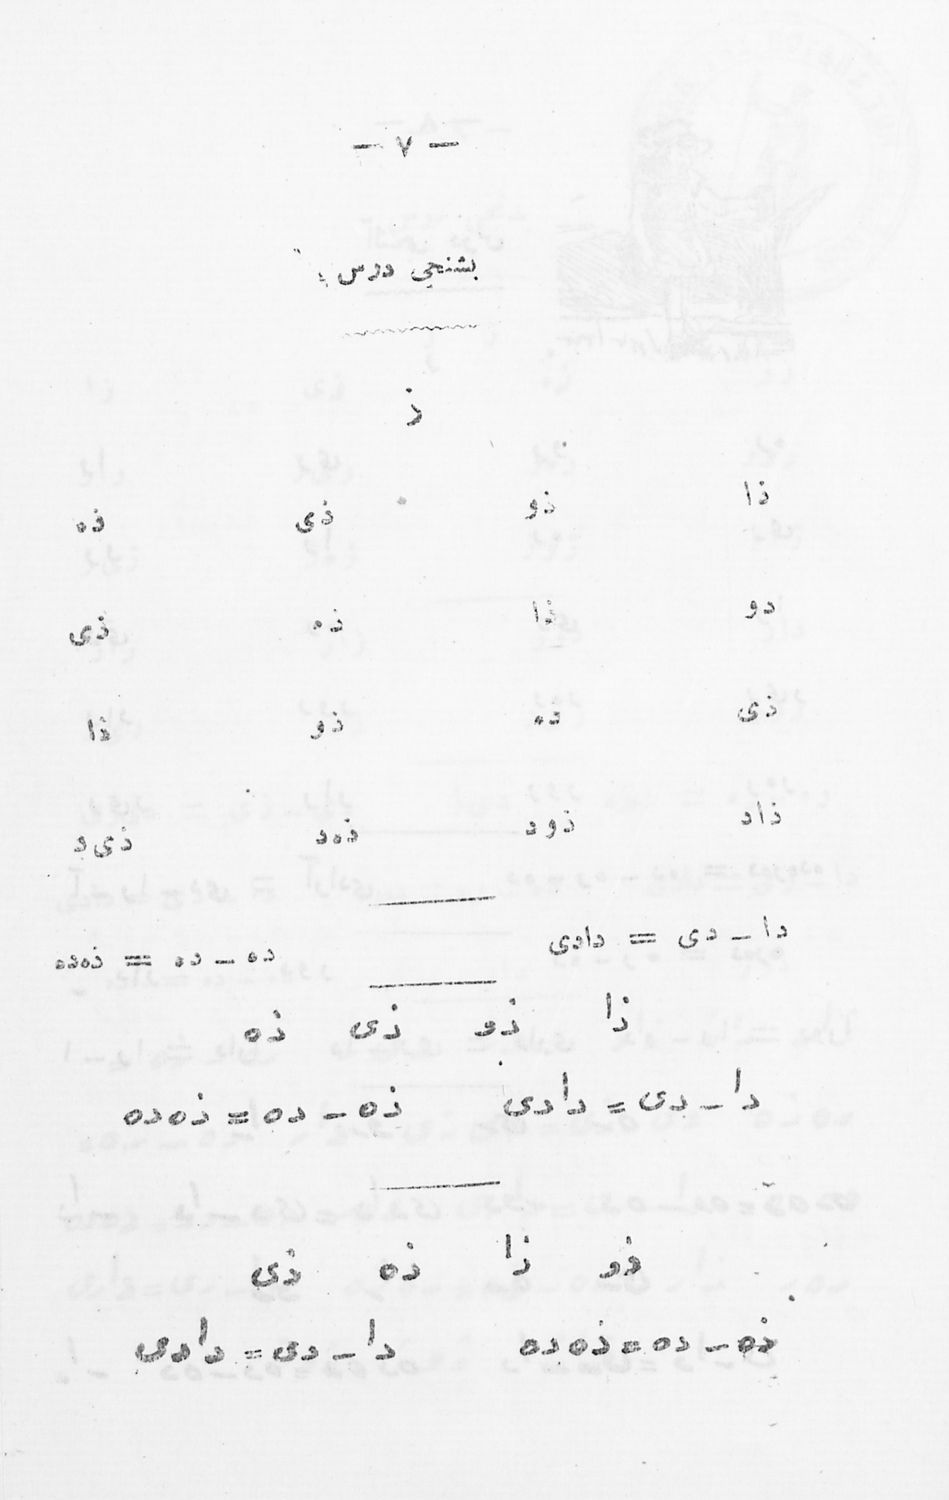 — ٧ —
بشنجی درس :
ذ
ذا ذو ذی ذه
دو ذا ذه ذی
ذی ده ذو ذا
ذاد ذود ذهد ذی‌د
دا ــ دی = دادی ده ــ ده = ذه‌ده
ذا ذو ذی ذه
دا ــ دی = دادی ذه ــ ده = ذه‌ده
ذو ذا ذه ذی
ذه ــ ده = ذه‌ده دا ــ دی = دادی